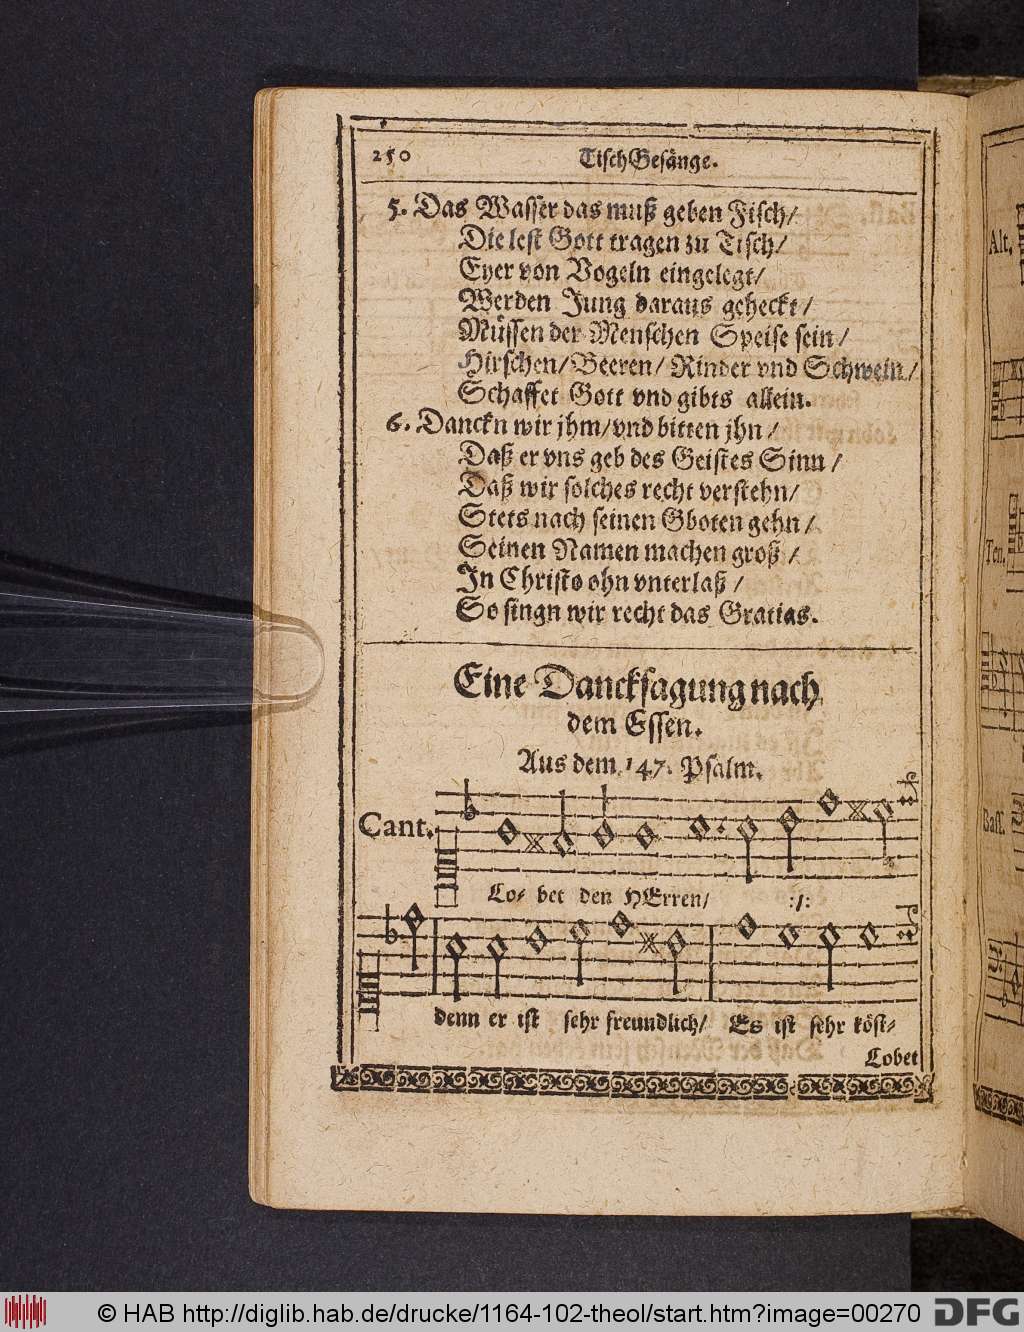 250 TischGesänge.
5. Das Wasser das muß geben Fisch/
Die lest Gott tragen zu Tisch/
Eyer von Vogeln eingelegt/
Werden Jung daraus geheckt/
Müssen der Menschen Speise sein/
Hirschen/Beeren/Rinder vnd Schwein/
Schaffet Gott vnd gibts allein.
6. Danckn wir jhm/vnd bitten jhn/
Daß er vns geb des Geistes Sinn/
Daß wir solches recht verstehn/
Stets nach seinen Gboten gehn/
Seinen Namen machen groß/
In Christo ohn vnterlaß/
So singn wir recht das Gratias.
Eine Dancksagung nach
dem Essen.
Aus dem 147. Psalm.
Cant.
Lo- bet den HErren/ :/:
denn er ist sehr freundlich/ Es ist sehr köst-
Lobet
Alt.
Ten.
Bass.
© HAB http://diglib.hab.de/drucke/1164-102-theol/start.htm?image=00270 DFG